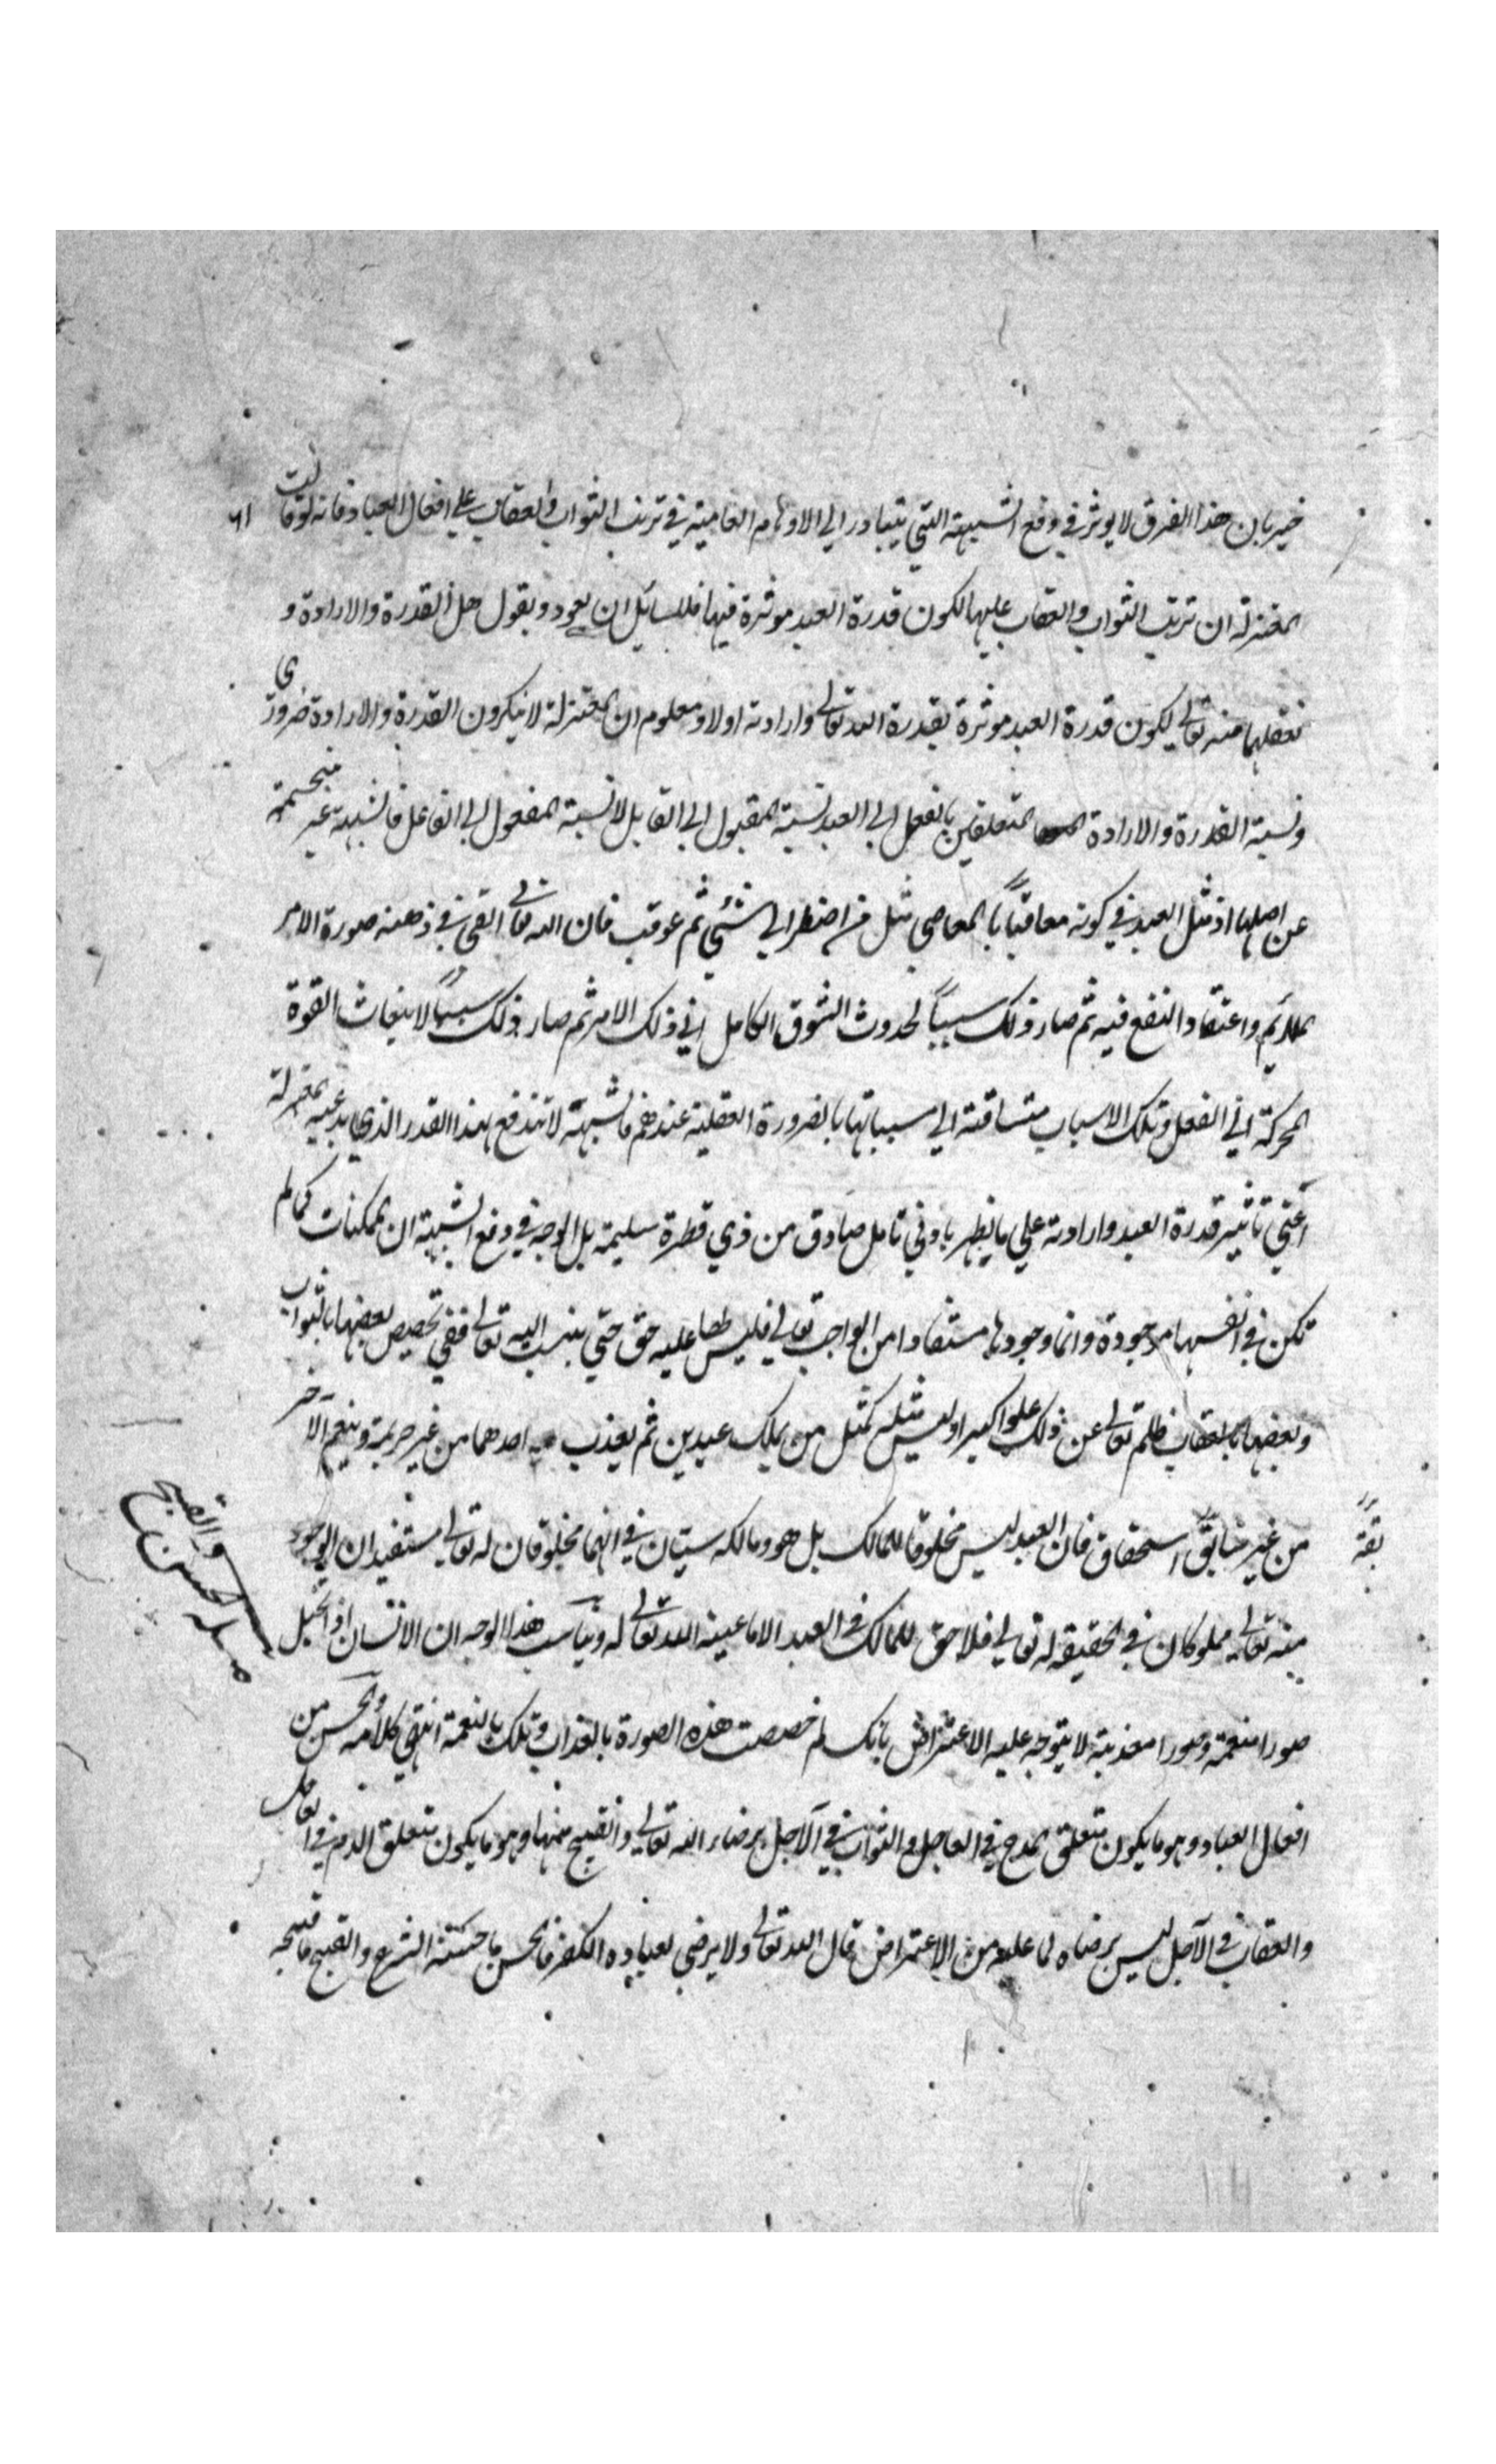 خبير بان هذا الفرق لا يوثر في دفع الشبهة التي يتبادر الي الاوهام العامية في ترتب الثواب والعقاب علي افعال العباد فانه لو قالت
٦١
المعتزلة ان ترتب الثواب والعقاب عليها لكون قدرة العبد موثرة فيها فللسائل ان يعود ويقول هل القدرة والارادة و
تعقلها منه تعالي ليكون قدرة العبد موثرة بقدرة الله تعالي وارادته اولا ومعلوم ان المعتزلة لا ينكرون القدرة والارادة ضروري
ونسبة القدرة والارادة المتعلقين بالفعل الي العبد نسبة المقبول الي القابل لا نسبة المفعول الي الفاعل فالشبهة غير منحسمة
عن اصلها اذ مثل العبد في كونه معاقبًا بالمعاصي مثل من اضطر الي شئي ثم عوقب فان الله تعالي القي في ذهنه صورة الامر
الملايم واعتقاد النفع فيه ثم صار ذلك سببًا لحدوث الشوق الكامل الي ذلك الامر ثم صار ذلك سببًا لانبعاث القوة
المحركة الي الفعل وتلك الاسباب متساقة الي مسبباتها بالضرورة العقلية عندهم فالشبهة لا تندفع بهذا القدر الذي يدعيه المعتزلة
اعني تاثير قدرة العبد وارادته علي ما يظهر بادني تامل صادق من ذي فطرة سليمة بل الوجه في دفع الشبهة ان الممكنات كما لم
تكن في انفسها موجودة وانما وجودها مستفادا من الواجب تعالي فليس لها عليه حق حتي ينسب اليه تعالي ففي تخصيص بعضها بالثواب
وبعضها بالعقاب ظلم تعالي عن ذلك علوا كبيرا وليس مثله كمثل من يملك عبدين ثم يعذب احدهما من غير جريمة وينعم الآخر
من غير سابقة استحقاق فان العبد ليس مخلوقا للمالك بل هو ومالكه سيان في انهما مخلوقان له تعالي مستفيدان الوجود
منه تعالي مملوكان في الحقيقة له تعالي فلا حق للمالك في العبد الا ما عينه الله تعالي له ويناسب هذا الوجه ان الانسان اذا تخيل
مسله الحسن والقبح
صورا منعمة وصورا معذبة لا يتوجه عليه الاعتراض بانك لم خصصت هذه الصورة بالعذاب وتلك بالنعمة انتهي كلامه والحسن من
افعال العباد وهو ما يكون متعلق المدح في العاجل والثواب في الآجل برضاء الله تعالي والقبيح منها وهو ما يكون متعلق الذم في العاجل
والعقاب في الآجل ليس برضاه لما عليه من الاعتراض قال الله تعالي ولا يرضي لعباده الكفر فالحسن ما حسنه الشرع والقبيح ما قبحه